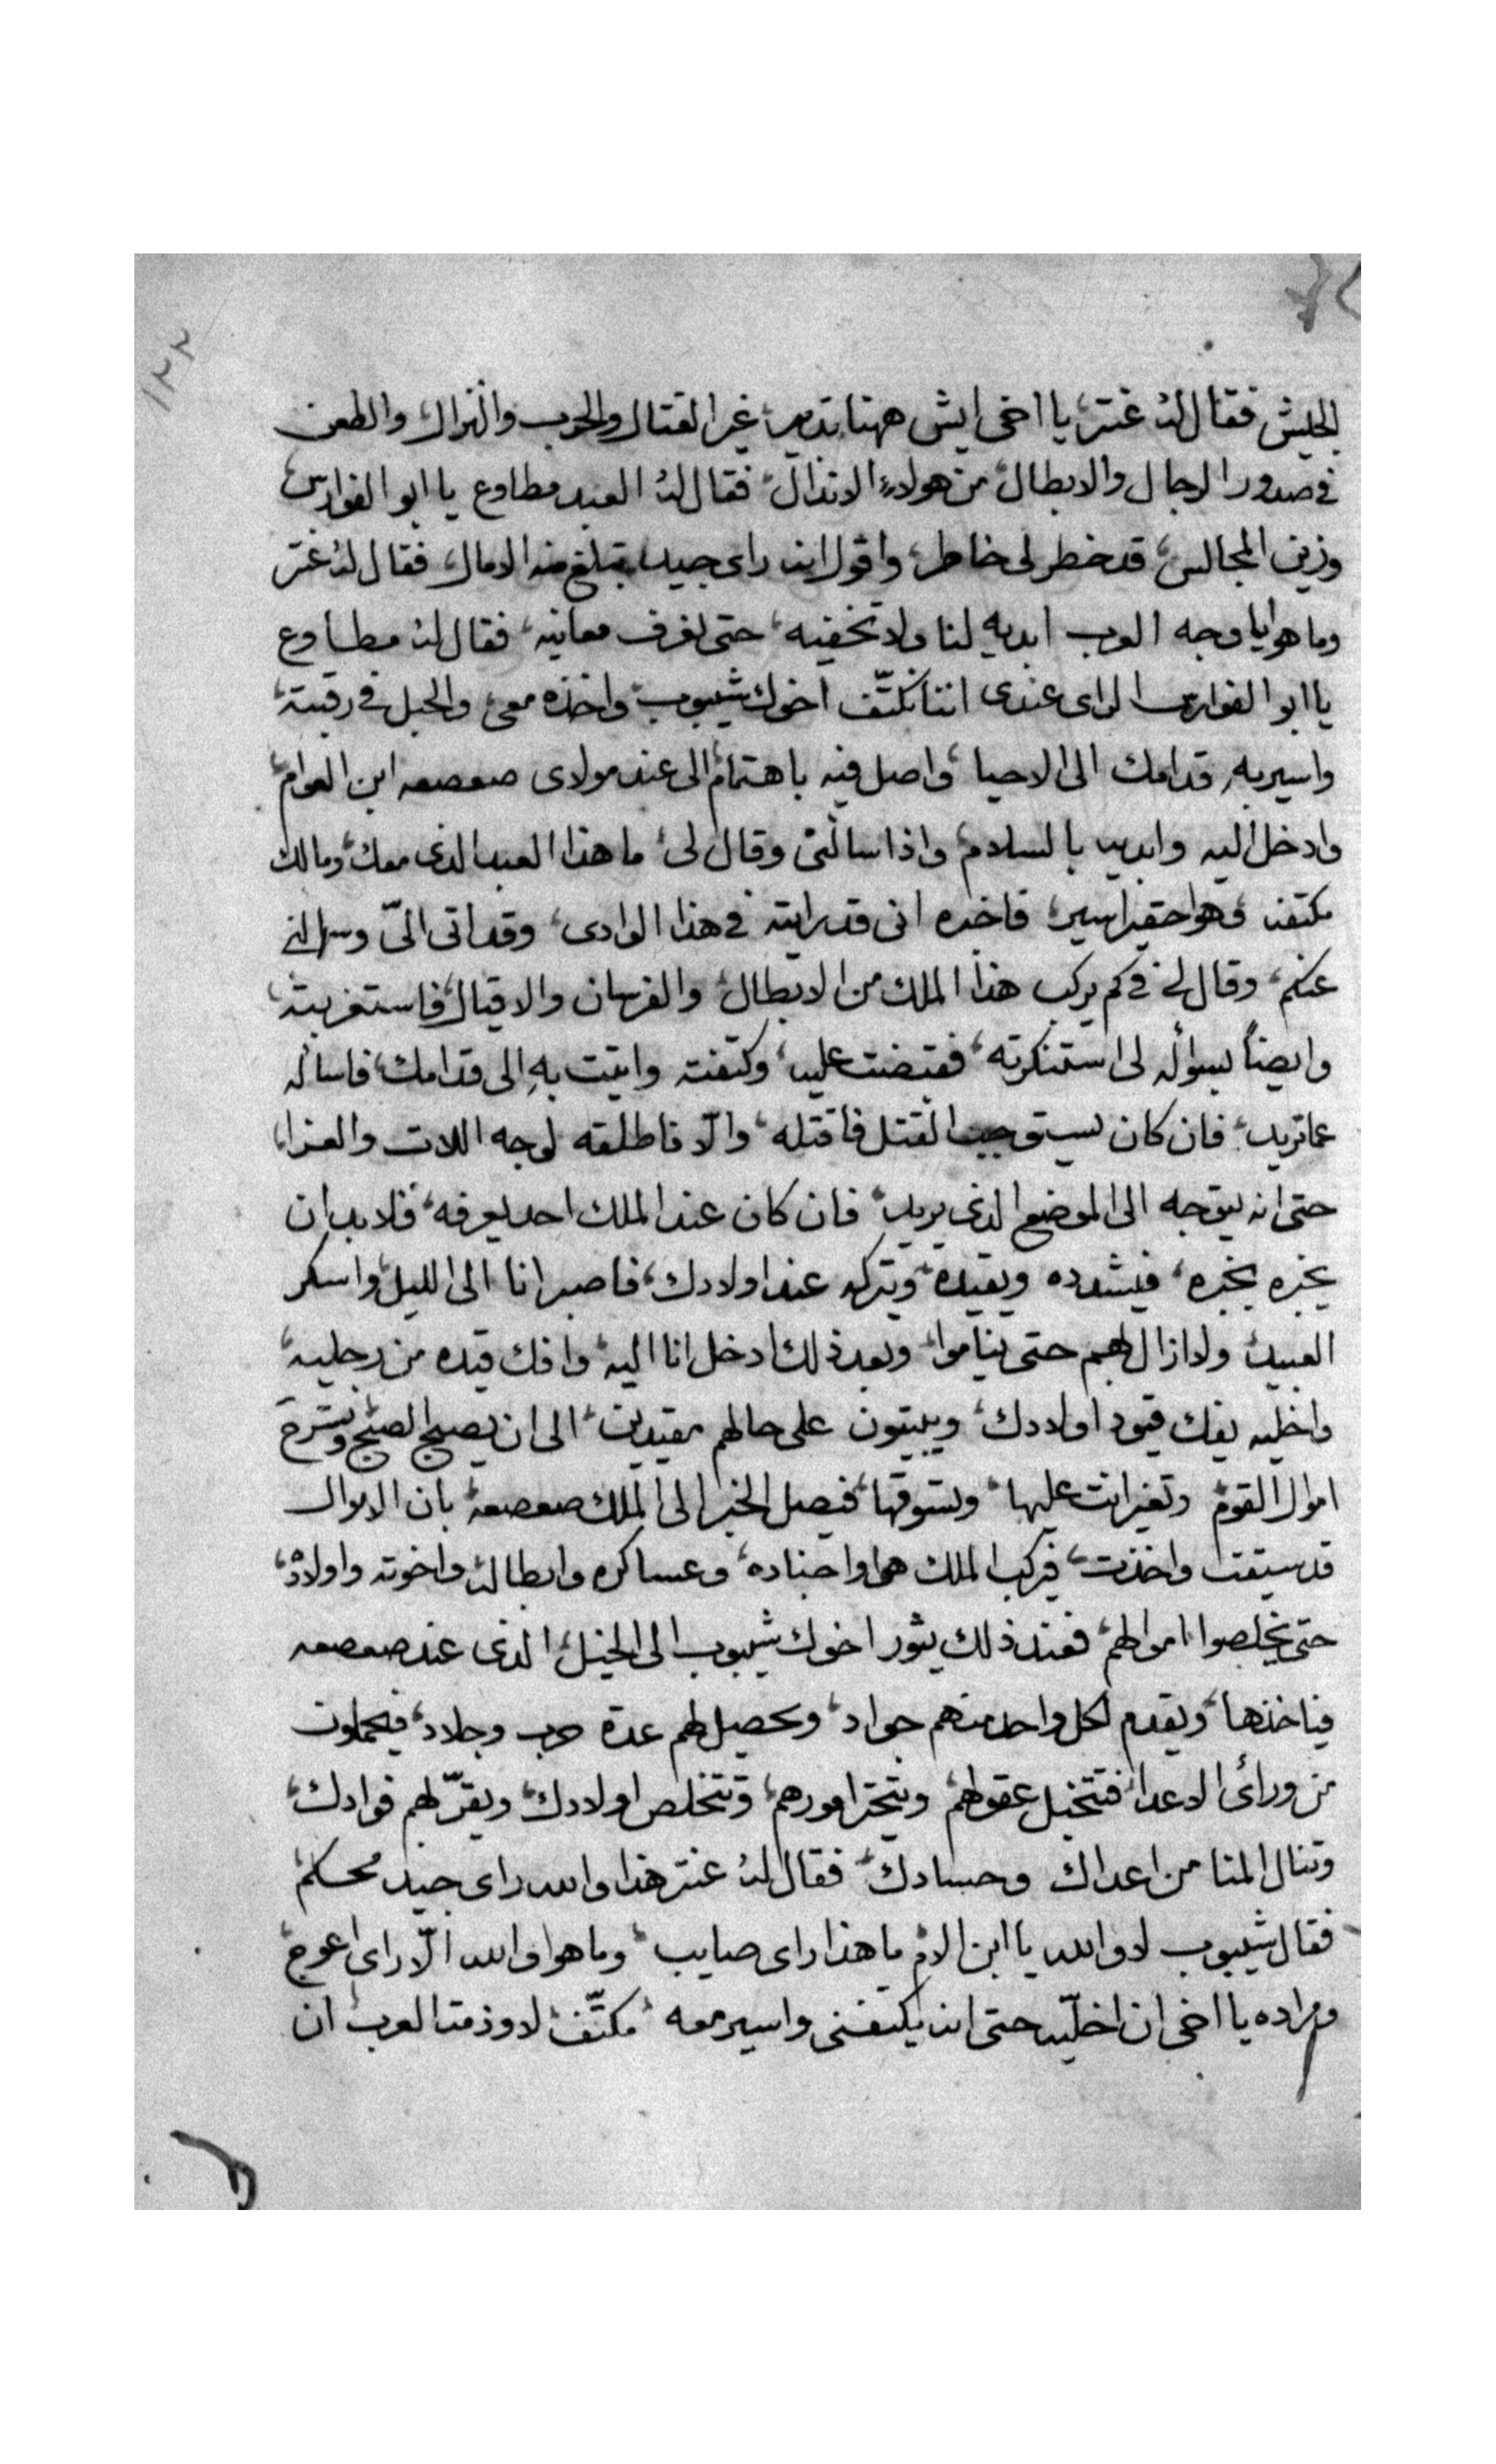 ١٢٢
الجيش فقال له عنتر يا اخى ايش ههنا تدبير غير القتال والحرب والنزال والطعن
فى صدور الرجال والابطال من هولاء الاندال فقال له العبد مطاوع يا ابو الفوارس
وزين المجالس قد خطر لى خاطر واقول انه راى جيد تبلغ منه الامال فقال له عنتر
وما هو يا وجه العرب ابديه لنا ولا تخفيه حتى نعرف معانيه فقال له مطاوع
يا ابو الفوارس الراى عندى اننا نكتّف اخوك شيبوب واخذه معى والحبل فى رقبته
واسير به قدامك الى الاحيا واصل فيه باهتمام الى عند مولادى صعصعه ابن العوام
وادخل اليه وابديه بالسلام واذا سالنى وقال لى ما هذا العبد الذى معك ومالك
مكتفه وهو حقير اسير فاخبره انى قد رايته فى هذا الوادى وقد اتى الىّ وسالنى
عنكم وقال لى فى كم يركب هذا الملك من الابطال والفرسان والاقيال فاستغربته
وايضاً بسواله لى استنكرته فقبضت عليه وكتفته واتيت به الى قدامك فاساله
عما تريد فان كان يستوجب القتل فاقتله والّا فاطلقه لوجه اللات والعزا
حتى انه يتوجه الى الموضع الذى يريد فان كان عند الملك احد يعرفه فلا بد ان
يخبره بخبره فيشدده ويقيده ويتركه عند اولادك فاصبر انا الى الليل واسكر
العبيد ولا ازال بهم حتى يناموا وبعد ذلك ادخل انا اليه وافك قيده من رجليه
واخليه يفك قيود اولادك ويبيتون على حالهم مقيدين الى ان يصبح الصبح وتسرح
اموال القوم وتغير انت عليها وتسوقها فيصل الخبر الى الملك صعصعه بان الاموال
قد سيقت واخذت فيركب الملك هو واجناده وعساكره وابطاله واخوته واولاده
حتى يخلصوا اموالهم فعند ذلك يثور اخوك شيبوب الى الخيل الذى عند صعصعه
فياخذها ويقدم لكل واحد منهم جواد ويحصيل لهم عدة حرب وجلاد فيحملون
من ورائ الاعدا فتنخبل عقولهم وتتحير امورهم وتتخلص اولادك ويقرّ لهم فوادك
وتنال المنا من اعداك وحسادك فقال له عنتر هذا والله راى جيد محكم
فقال شيبوب لا والله يا ابن الام ما هذا راى صايب وما هو والله الّا راى اعوج
ومراده يا اخى ان اخلّيه حتى انه يكتفنى واسير معه مكتّف لا وذمة العرب ان